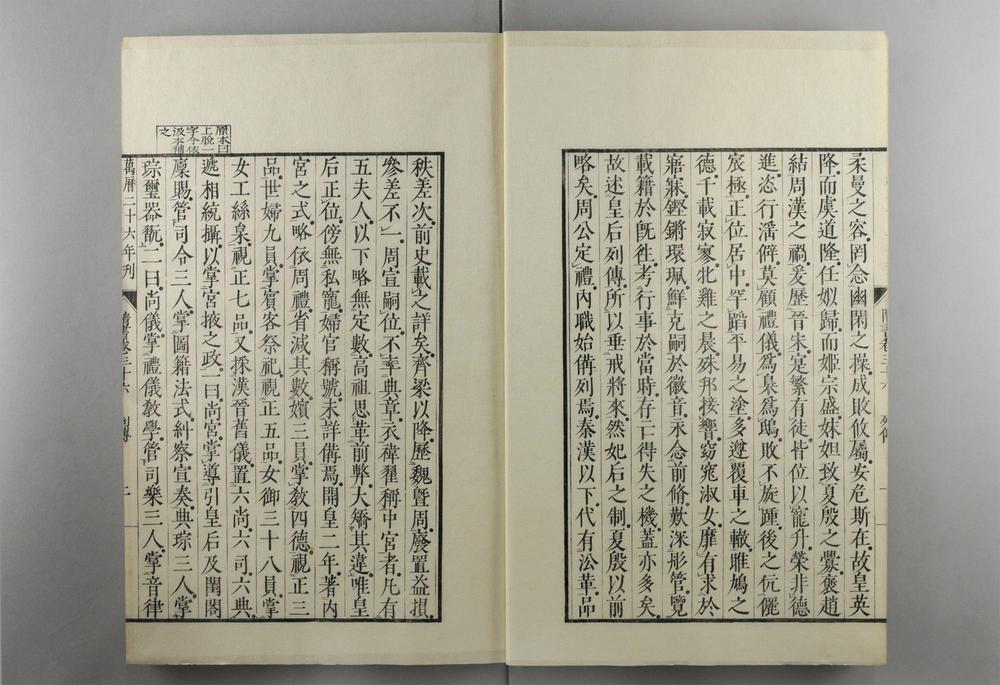 柔曼之容罔念幽閑之操成敗攸屬安危斯在故皇英
降而虞道隆任姒歸而姬宗盛妹妲致夏殷之釁褒趙
結周漢之禍爰歷晉宋寔繁有徒皆位以寵升榮非德
進恣行淫僻莫顧禮儀爲梟爲鴟敗不旋踵後之伉儷
宸極正位居中罕蹈平易之塗多遵覆車之轍雎鳩之
德千載寂寥牝雞之晨殊邦接響窈窕淑女靡有求於
寤寐鏗鏘環珮鮮克嗣於徽音永念前脩歎深彤管覽
載籍於旣徃考行事於當時存亡得失之機蓋亦多矣
故述皇后列傳所以垂戒將來然妃后之制夏殷以前
略矣周公定禮內職始備列焉秦漢以下代有沿革品
秩差次前史載之詳矣齊梁以降歷魏曁周廢置益損
參差不一周宣嗣位不率典章衣褘翟稱中宮者凡有
五夫人以下略無定數高祖思革前弊大矯其違唯皇
后正位傍無私寵婦官稱號未詳備焉開皇二年著內
宮之式略依周禮省減其數嬪三員掌敎四德視正三
品世婦九員掌賓客祭祀視正五品女御三十八員掌
女工絲枲視正七品又採漢晉舊儀置六尚六司六典
遞相統攝以掌宮掖之政一曰尚宮掌導引皇后及閨閤
廩賜管司令三人掌圖籍法式糾察宣奏典琮三人掌
琮璽器翫二曰尚儀掌禮儀敎學管司樂三人掌音律
原本曰
上脫一
字今依
汲本補
之
萬曆二十六年刊 隋書卷三十六 列傳 二